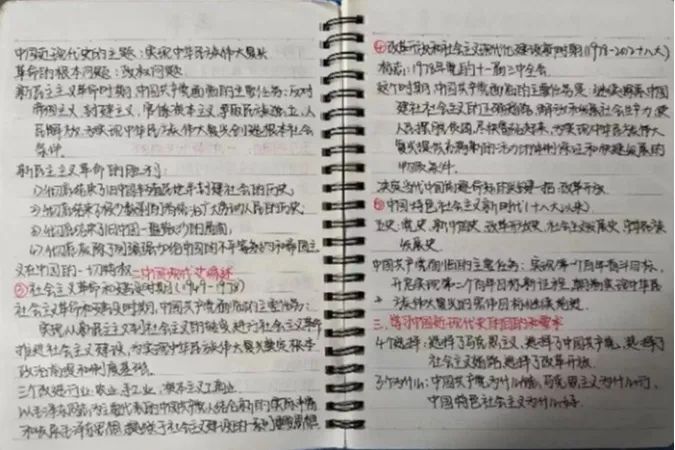 中国近现代史的主题：实现中华民族伟大复兴
革命的根本问题：政权问题
新民主主义革命时期，中国共产党面临的主要任务：反对
帝国主义、封建主义、官僚资本主义，争取民族独立、人
民解放，为实现中华民族伟大复兴创造根本社会
条件。
新民主主义革命的胜利：
1)彻底结束了旧中国半殖民地半封建社会的历史；
2)彻底结束了极少数剥削者统治广大劳动人民的历史；
3)彻底结束了旧中国一盘散沙的局面；
4)彻底废除了列强强加给中国的不平等条约和帝国主
义在中国的一切特权
二中国现代史
③社会主义革命和建设时期(1949-1978)
社会主义革命和建设时期，中国共产党面临的主要任务：
实现从新民主主义到社会主义的转变，进行社会主义革命
推进社会主义建设，为实现中华民族伟大复兴奠定根本
政治前提和制度基础。
三个改造：农业、手工业、资本主义工商业
以毛泽东同志为主要代表的中国共产党人结合新的实际丰富
和发展毛泽东思想，提出关于社会主义建设的一系列重要思想
④改革开放和社会主义现代化建设新时期(1978-2012十八大)
标志：1978年党的十一届三中全会
这个时期，中国共产党面临的主要任务是，继续探索中国
建设社会主义的正确道路，解放和发展社会生产力，使
人民摆脱贫困、尽快富裕起来，为实现中华民族伟大
复兴提供充满新的活力的体制保证和快速发展的
物质条件。
决定当代中国前途命运的关键一招：改革开放
⑤中国特色社会主义新时代(十八大以来)
五史：党史、新中国史、改革开放史、社会主义发展史、中华民族
发展史。
中国共产党面临的主要任务：实现第一个百年奋斗目标，
开启实现第二个百年目标新征程，朝着实现中华民
族伟大复兴的宏伟目标继续前进。
三、学习中国近现代史的目的和要求
4个选择：选择了马克思主义，选择了中国共产党，选择了
社会主义道路，选择了改革开放。
3个为什么：中国共产党为什么能，马克思主义为什么行，
中国特色社会主义为什么好。